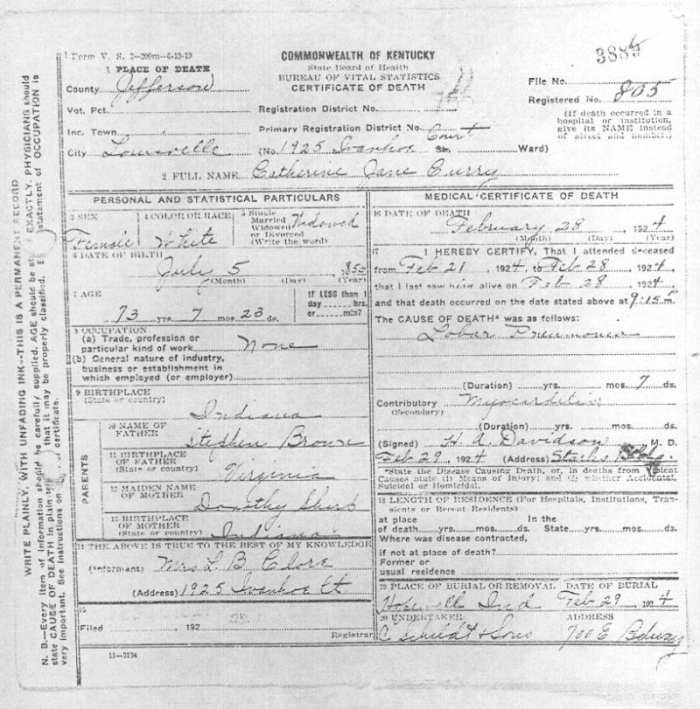 Form V. S. 2—200m—6-13-19
COMMONWEALTH OF KENTUCKY
State Board of Health
BUREAU OF VITAL STATISTICS
CERTIFICATE OF DEATH
1 PLACE OF DEATH
County Jefferson
Vot. Pct.
Inc. Town
City Louisville
Registration District No.
Primary Registration District No.
(No. 1925 Ivanhoe Court St. Ward)
File No.
Registered No. 805
(If death occurred in a
hospital or institution,
give its NAME instead
of street and number.)
2 FULL NAME Catherine Jane Curry
PERSONAL AND STATISTICAL PARTICULARS
3 SEX
Female
4 COLOR OR RACE
White
5 Single
Married
Widowed
or Divorced
(Write the word)
Widowed
6 DATE OF BIRTH
July 5 1850
(Month) (Day) (Year)
7 AGE
73 yrs. 7 mos. 23 ds.
If LESS than 1
day hrs.
or min.?
8 OCCUPATION
(a) Trade, profession or
particular kind of work None
(b) General nature of industry,
business or establishment in
which employed (or employer)
9 BIRTHPLACE
(State or country)
Indiana
PARENTS
10 NAME OF
FATHER
Stephen
11 BIRTHPLACE
OF FATHER
(State or country)
Virginia
12 MAIDEN NAME
OF MOTHER
Dorothy
13 BIRTHPLACE
OF MOTHER
(State or country)
Indiana
14 THE ABOVE IS TRUE TO THE BEST OF MY KNOWLEDGE
(Informant) Mrs L. B.
(Address) 1925 Ivanhoe Ct
15
Filed 192
Registrar
11—3184
MEDICAL CERTIFICATE OF DEATH
16 DATE OF DEATH
February 28 1924
(Month) (Day) (Year)
17 I HEREBY CERTIFY, That I attended deceased
from Feb 21, 1924, to Feb 28, 1924
that I last saw her alive on Feb 28, 1924
and that death occurred on the date stated above at 9:15 m.
The CAUSE OF DEATH* was as follows:
Lobar Pneumonia
(Duration) yrs. mos. 7 ds.
Contributory
(Secondary)
(Duration) yrs. mos. ds.
(Signed) H. A. Davidson M. D.
Feb 29, 1924 (Address) Starks Bldg.
*State the Disease Causing Death, or, in deaths from Violent
Causes state (1) Means of Injury; and (2) whether Accidental,
Suicidal or Homicidal.
18 LENGTH OF RESIDENCE (For Hospitals, Institutions, Transients or Recent Residents)
at place
of death yrs. mos. ds.
In the
State yrs. mos. ds.
Where was disease contracted,
if not at place of death?
Former or
usual residence
19 PLACE OF BURIAL OR REMOVAL
Ind
DATE OF BURIAL
Feb 29, 1924
20 UNDERTAKER
& Sons
ADDRESS
700 E
WRITE PLAINLY, WITH UNFADING INK—THIS IS A PERMANENT RECORD
N. B.—Every item of information should be carefully supplied. AGE should be EXACTLY. PHYSICIANS should
state CAUSE OF DEATH in plain that it may be properly classified. statement of OCCUPATION is
very important. See instructions on certificate.